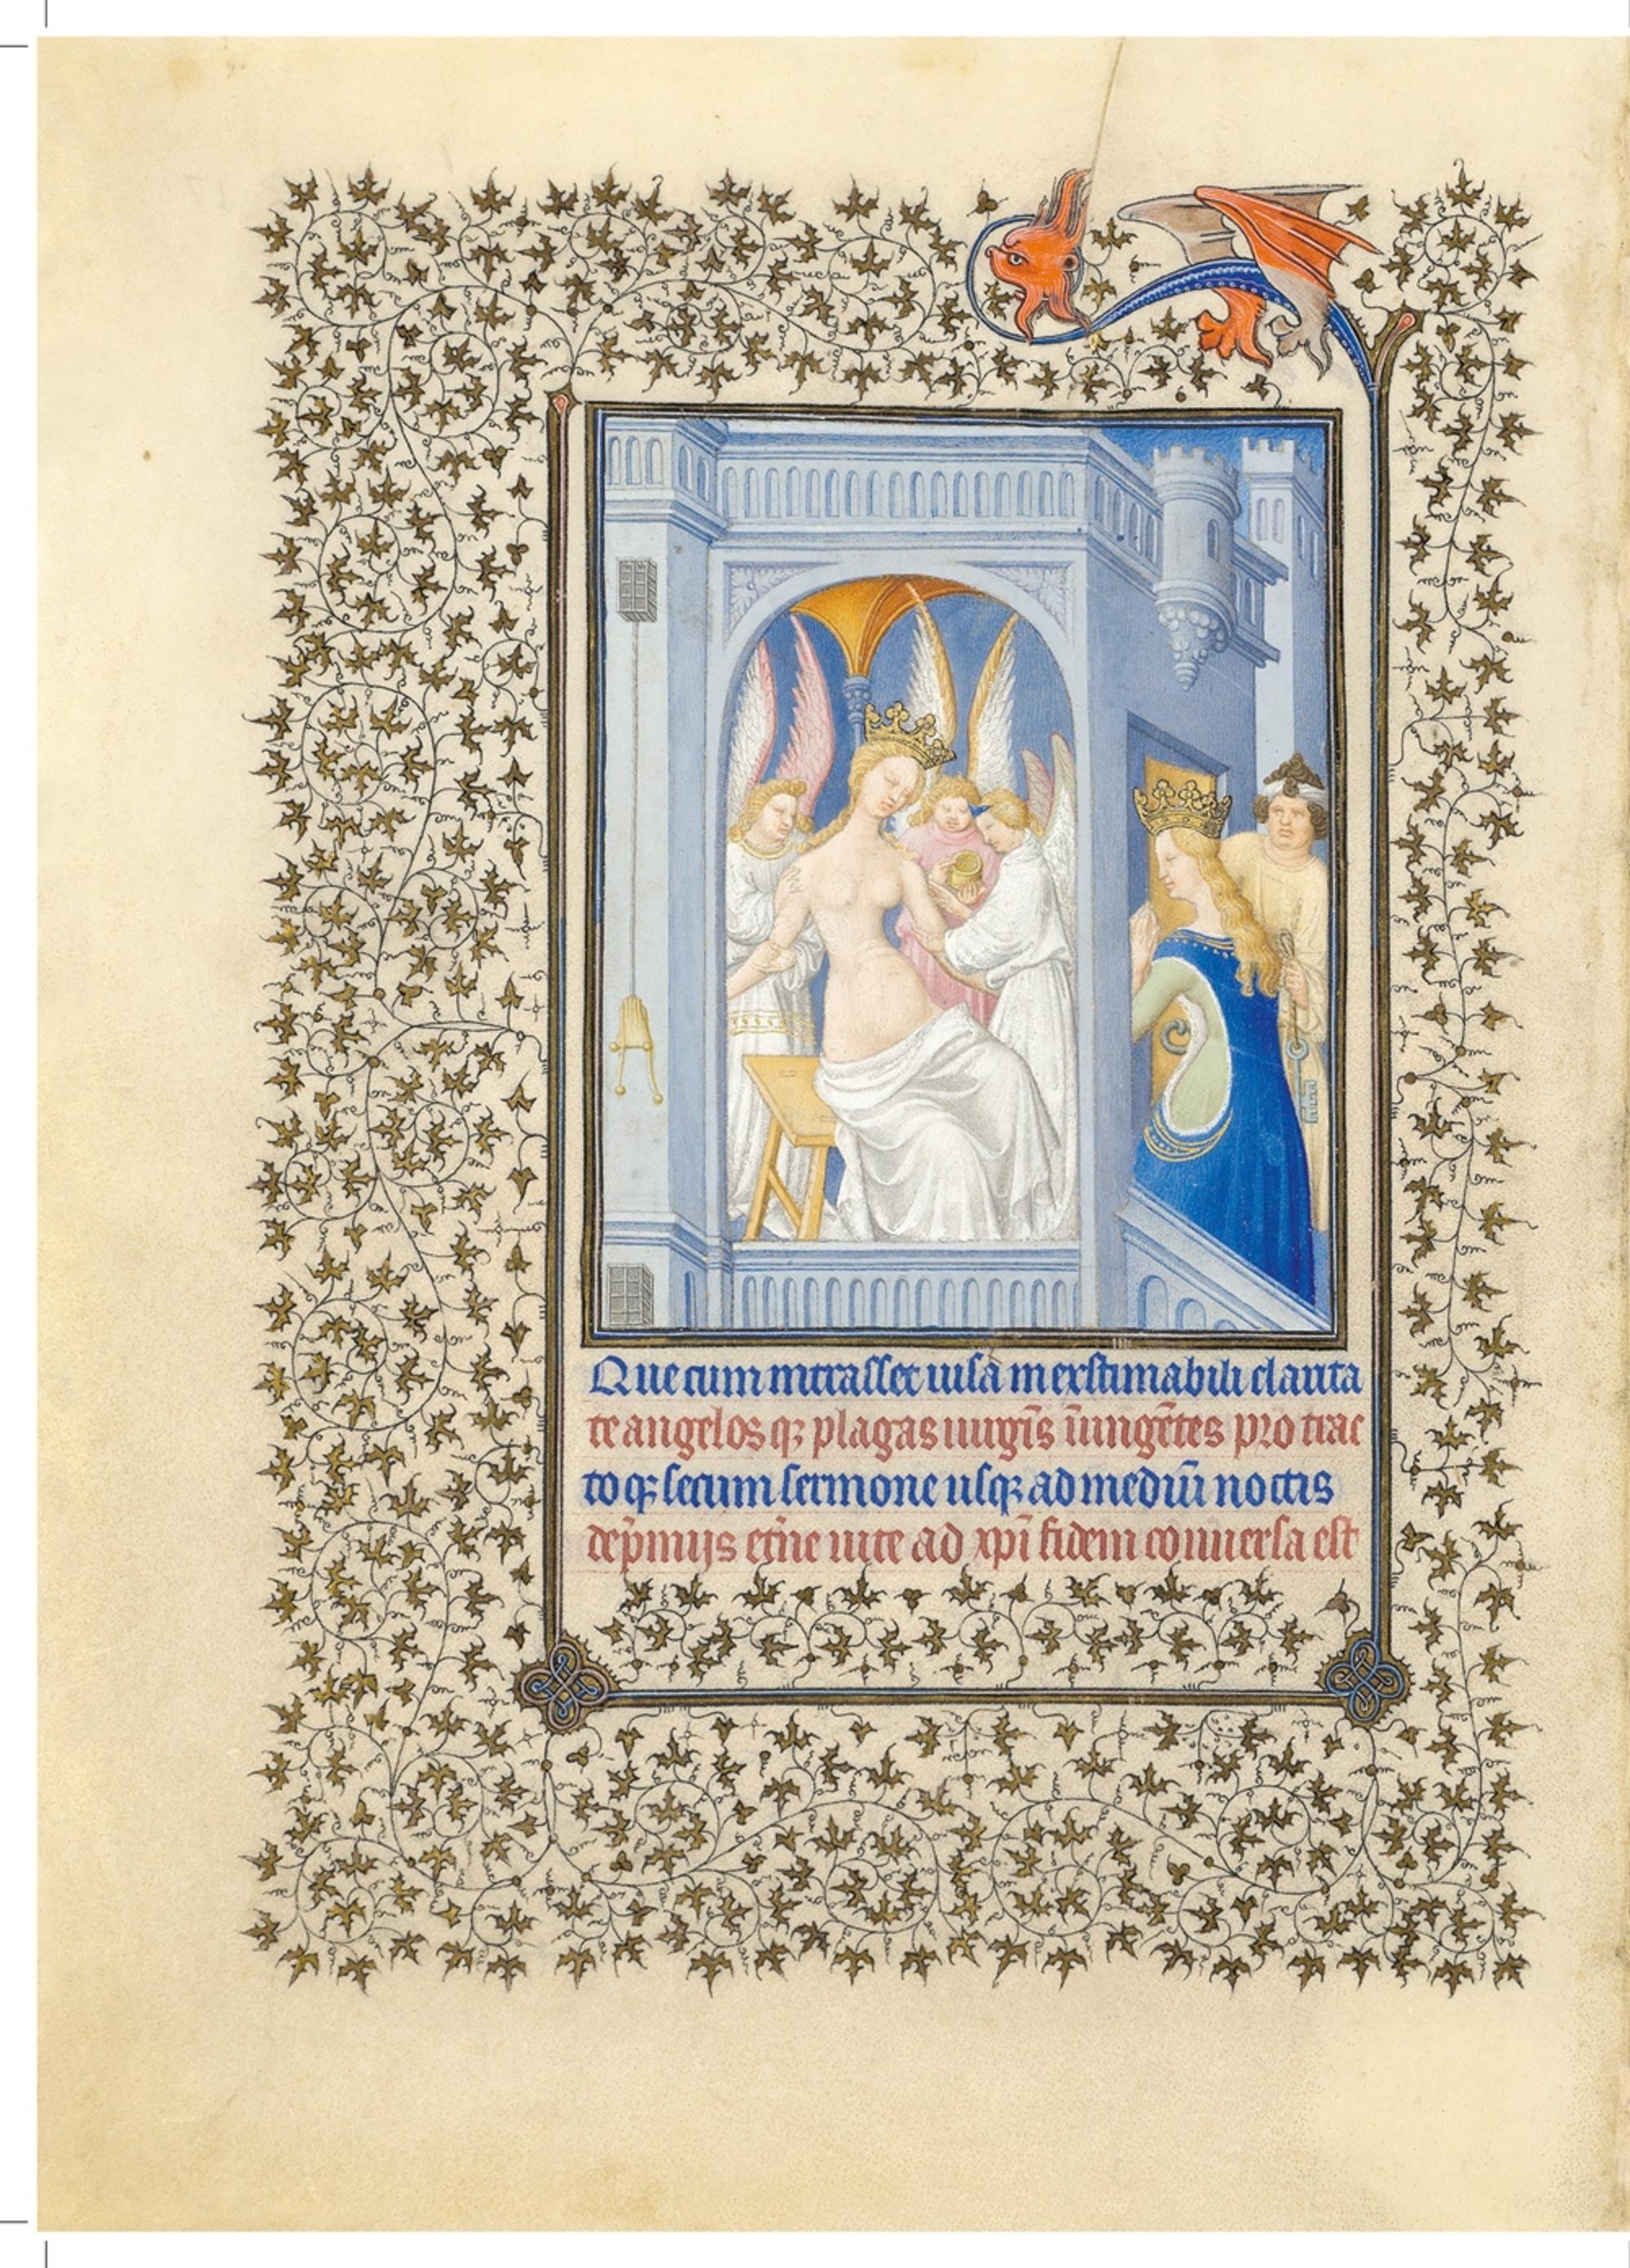 Que cum intrasset uisa inextimabili clarita
te angelos qꝫ plagas uirgĩs ũungẽtes pro trac
to qꝫ secum sermone usqꝫ ad mediũ noctis
de p̃mijs et̃ne uite ad xpĩ fidem conuersa est